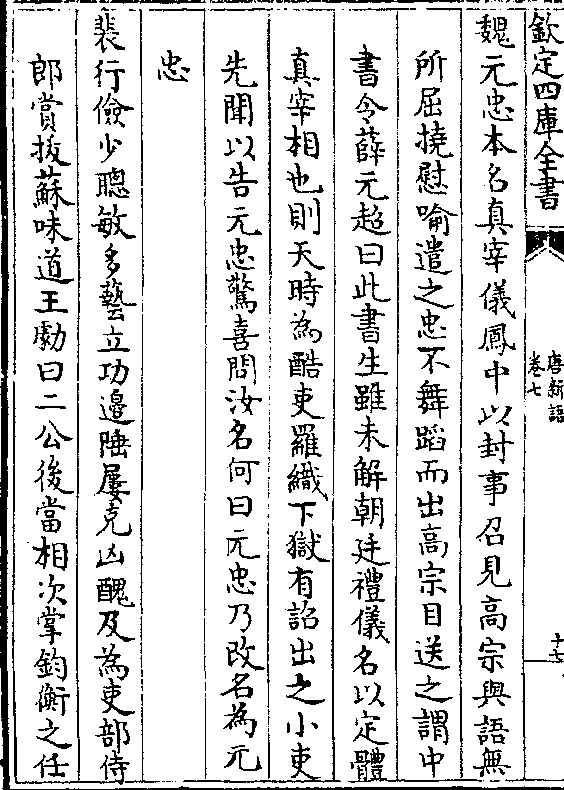 欽定四庫全書
唐新語
卷七
十七
魏元忠本名真宰儀鳳中以封事召見高宗與語無
所屈撓慰喻遣之忠不舞蹈而出高宗目送之謂中
書令薛元超曰此書生雖未解朝廷禮儀名以定體
真宰相也則天時為酷吏羅織下獄有詔出之小吏
先聞以告元忠驚喜問汝名何曰元忠乃改名為元
忠
裴行儉少聰敏多藝立功邊陲屢克凶醜及為吏部侍
郎賞拔蘇味道王勮曰二公後當相次掌鈞衡之任